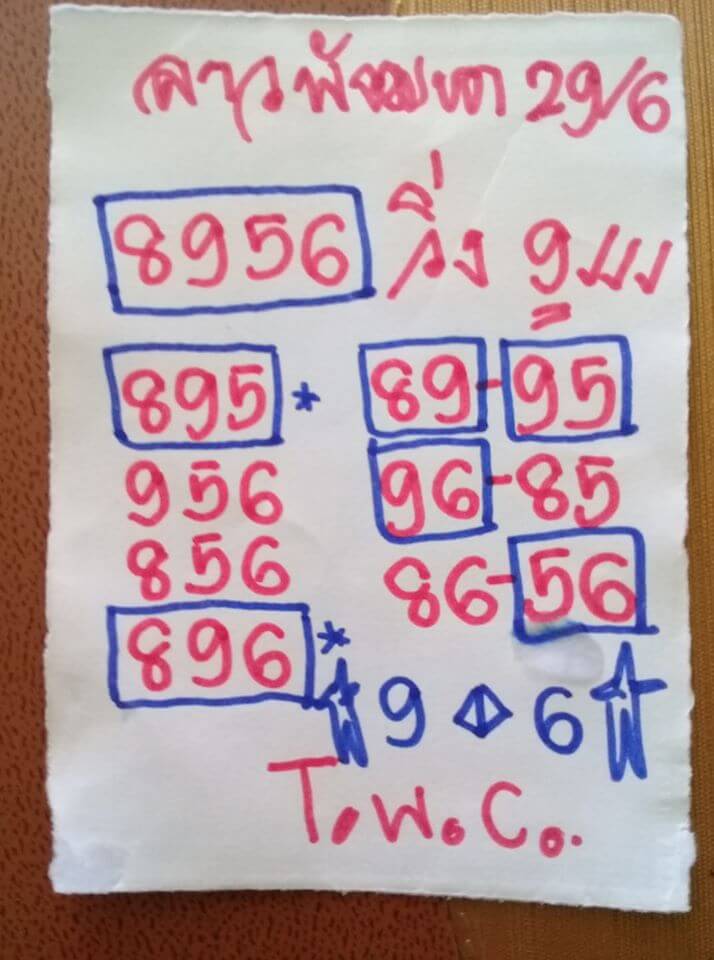 ลาวพัฒนา 29/6
8956 วิ่ง 9 บน
895 * 89-95
956 96-85
856 86-56
896 *
9 6
T.W.C.